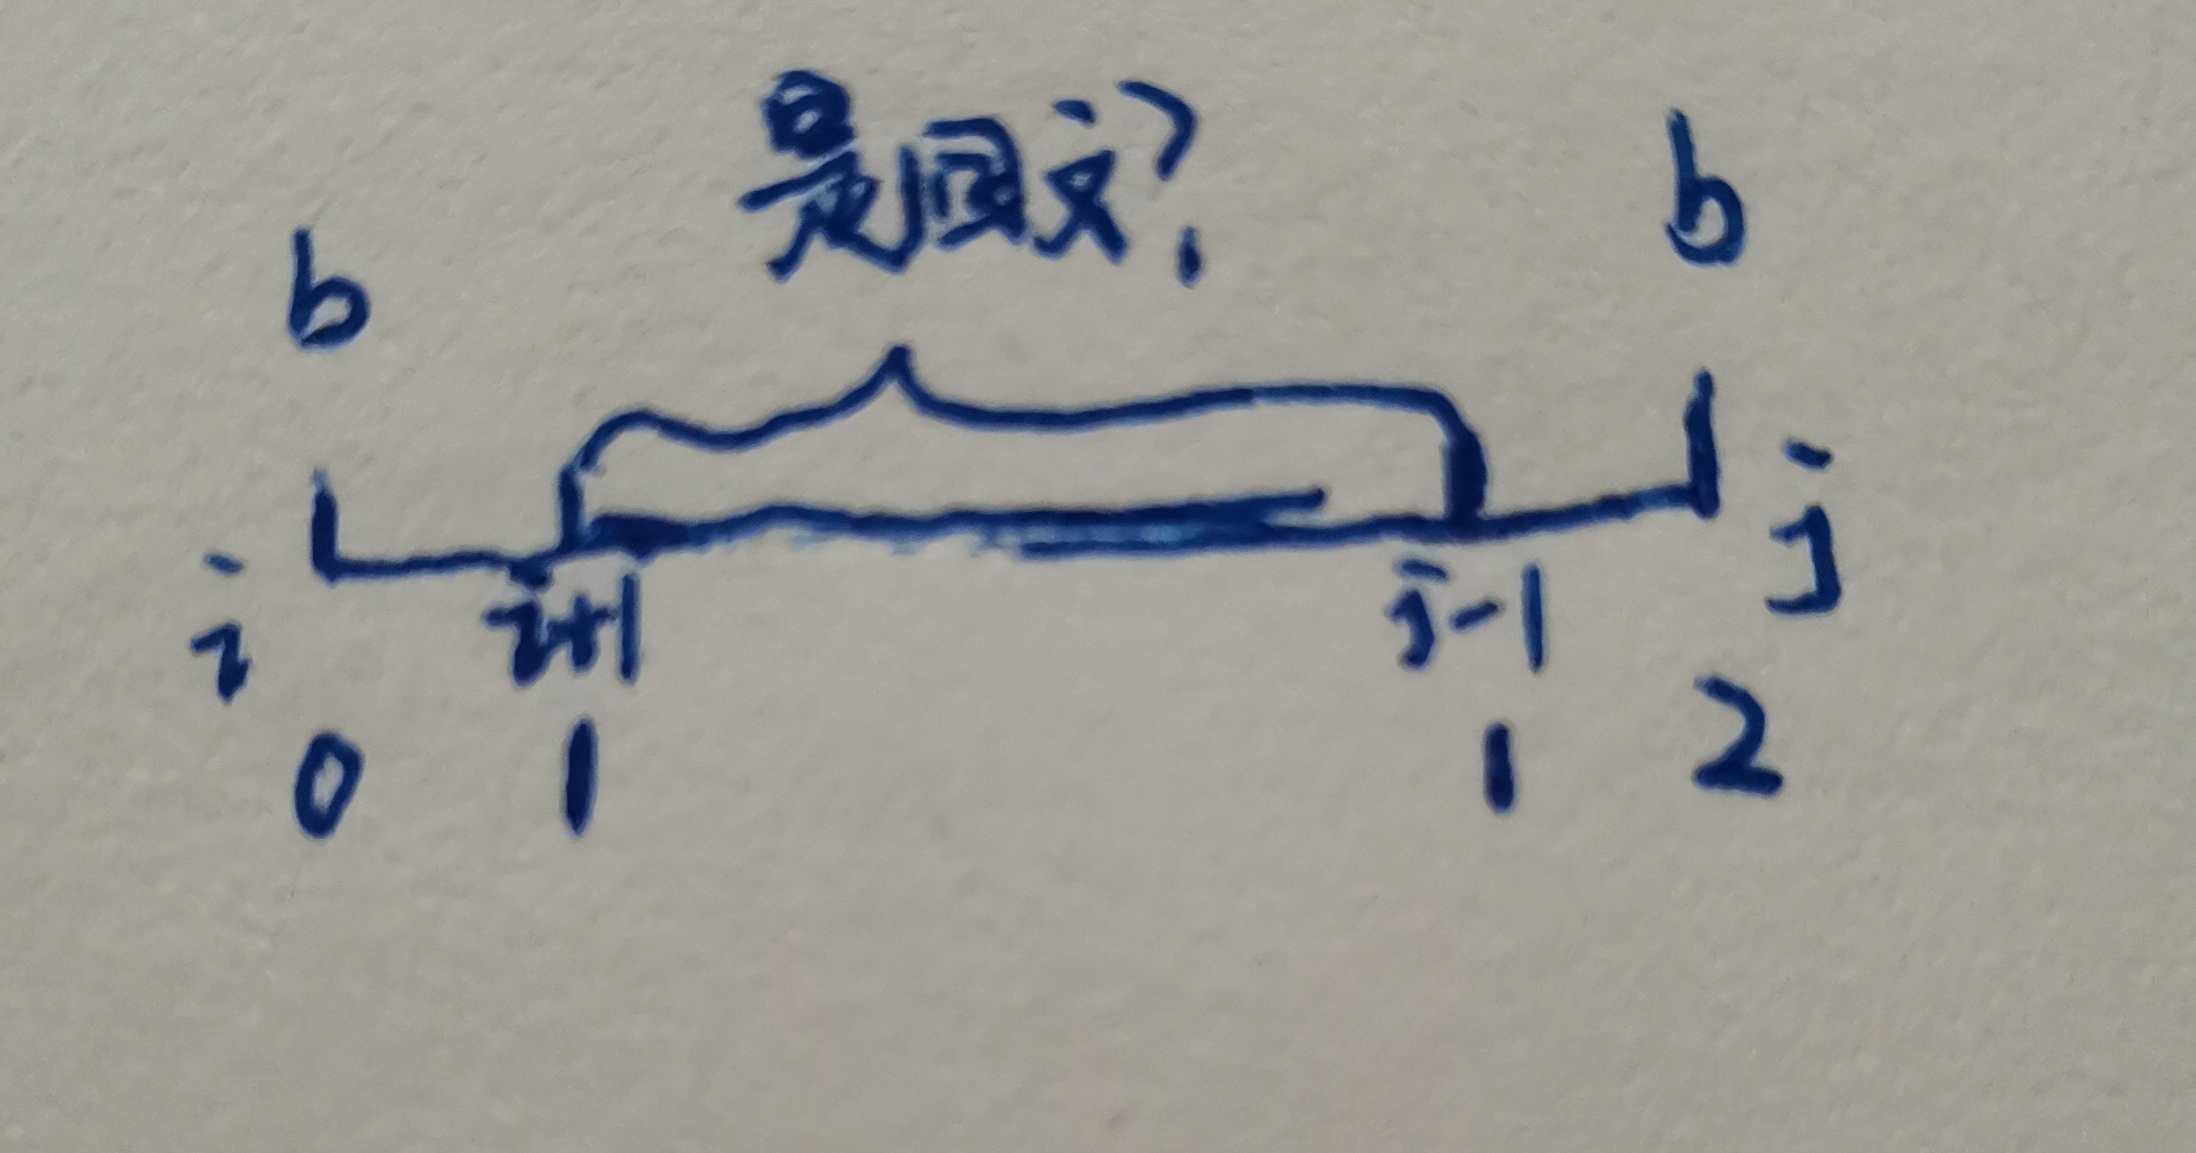 是回文?
b b
i i+1 j-1 j
0 1 1 2